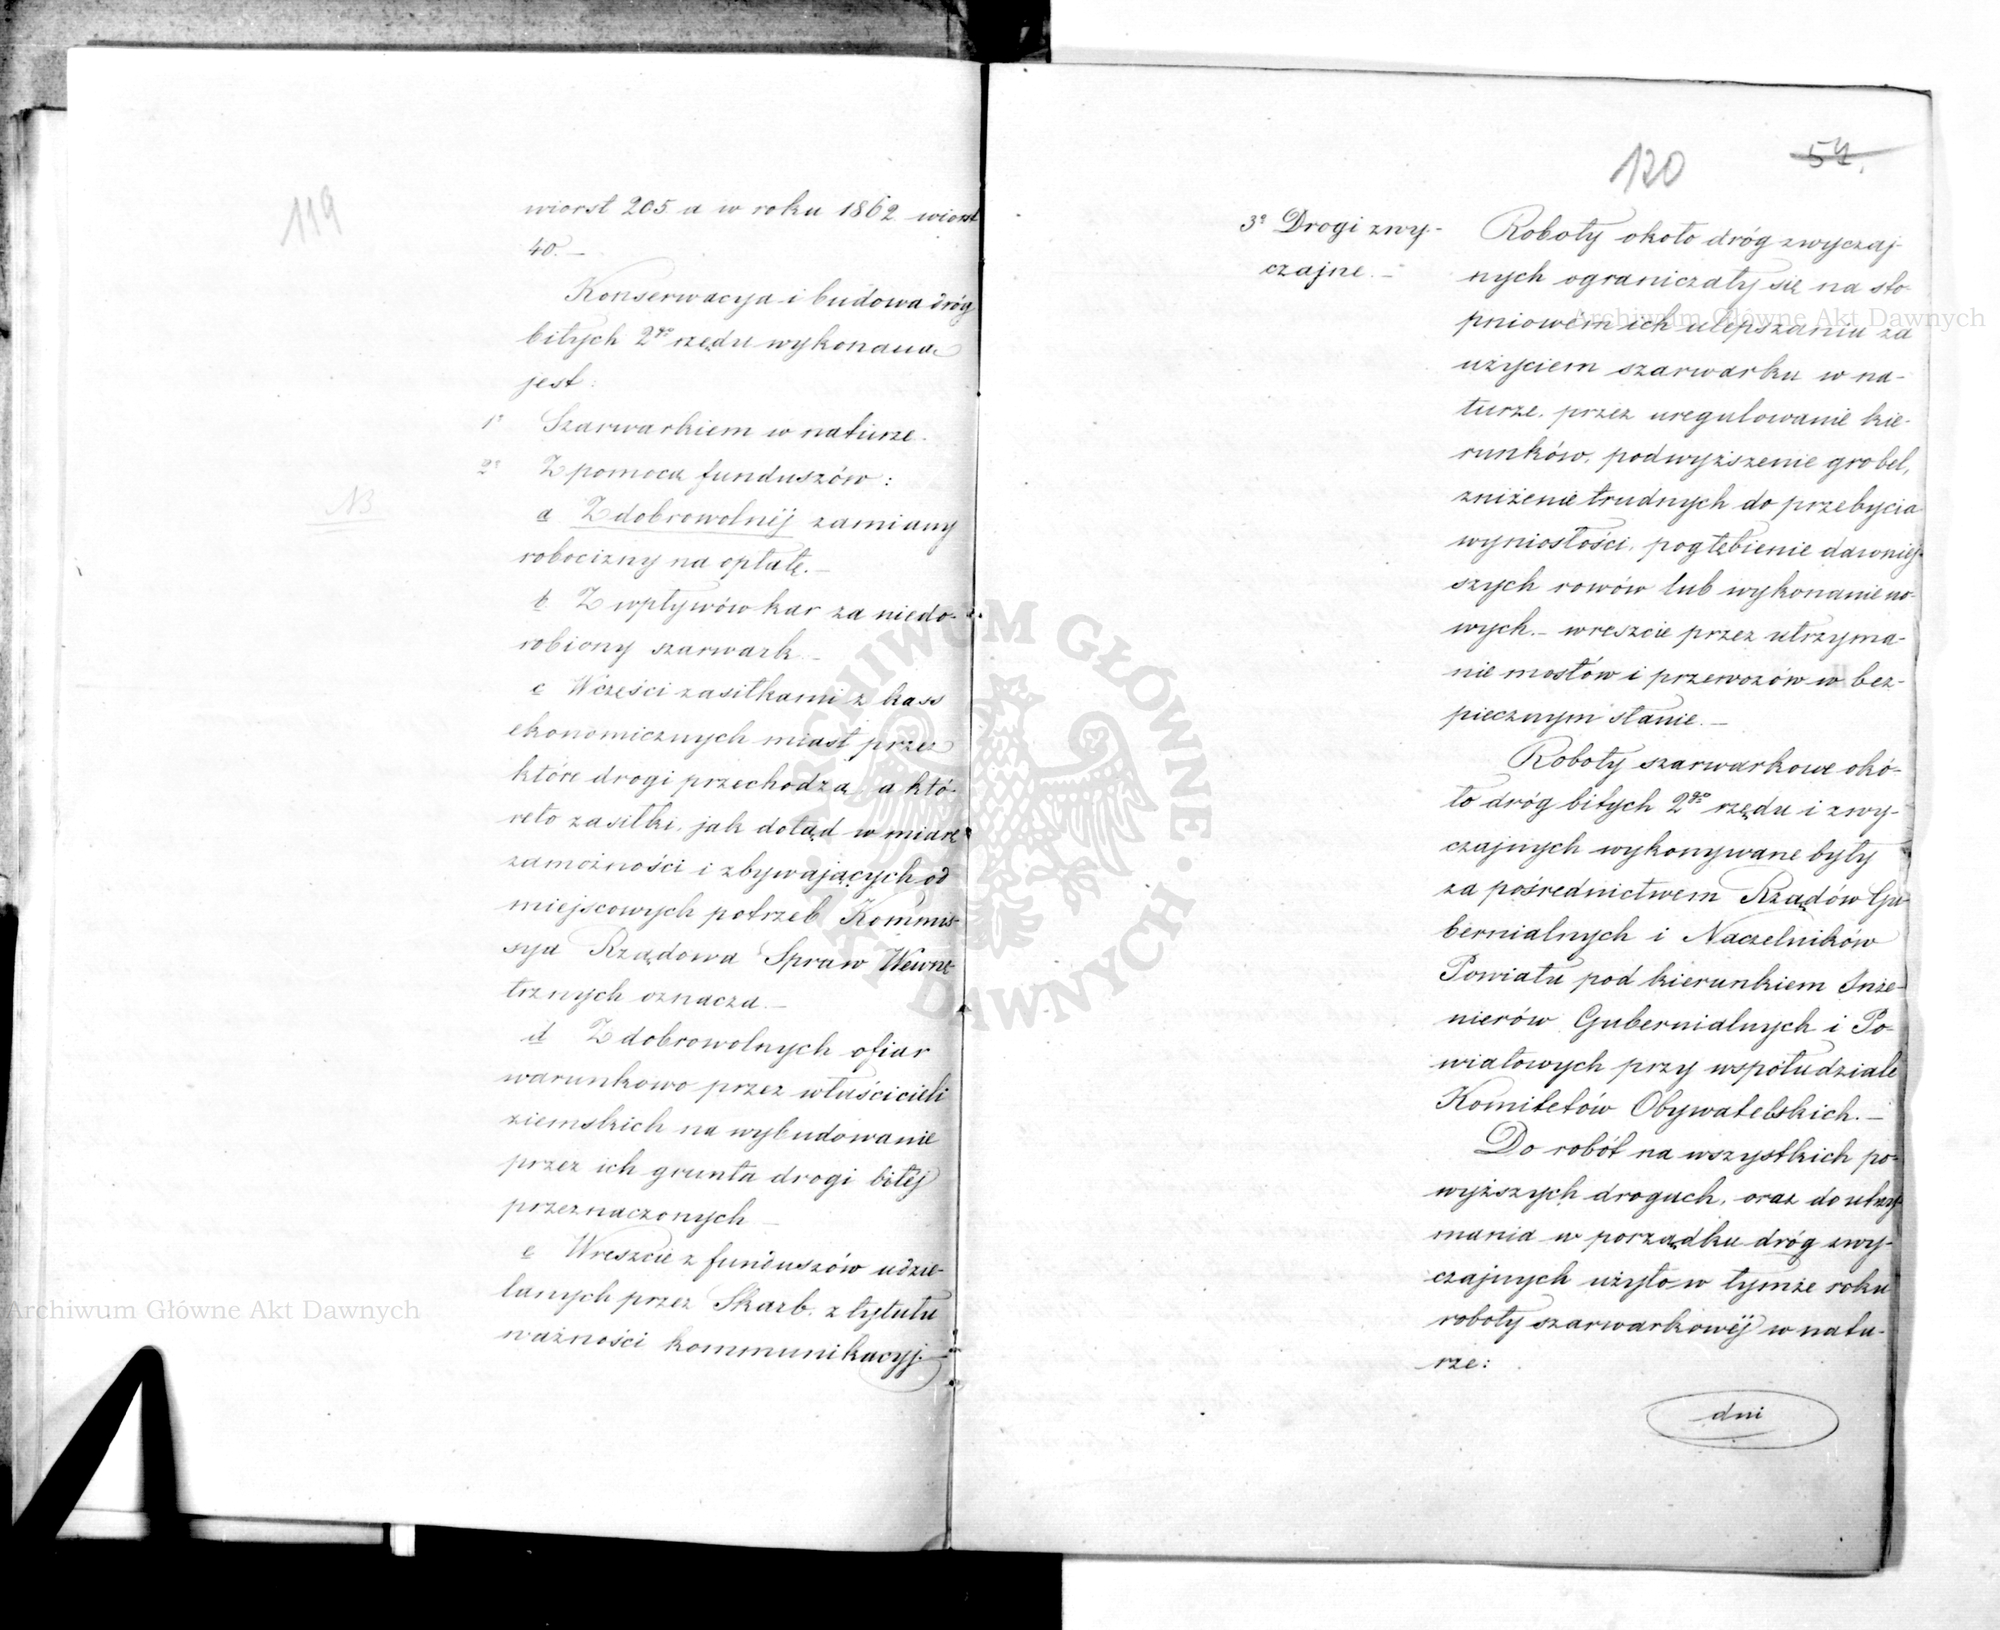 119
wiorst 205 a w roku 1862 wiorst
40.—
Konserwacyja i budowa dróg
bitych 2go rzędu wykonana
jest:
1o Szarwarkiem w naturze.
2o Z pomocą funduszów:
NB
a Z dobrowolnéj zamiany
robocizny na opłatę.—
b Z wpływów kar za niedo-
robiony szarwark.—
c W części zasiłkami z kass
ekonomicznych miast przez
które drogi przechodzą, a któ-
reto zasiłki, jak dotąd w miarę
zamożności i zbywających od
miejscowych potrzeb Kommis-
syja Rządowa Spraw Wewnę-
trznych oznacza.—
d Z dobrowolnych ofiar
warunkowo przez właścicieli
ziemskich na wybudowanie
przez ich grunta drogi bitéj
przeznaczonych—
e Wreszcie z funduszów udzie-
lanych przez Skarb, z tytułu
ważności kommunikacyj.
120
54.
3o Drogi zwy-
czajne.—
Roboty około dróg zwyczaj-
nych ograniczały się na sto-
pniowem ich ulepszaniu za
użyciem szarwarku w na-
turze, przez uregulowanie kie-
runków, podwyższenie grobel,
zniżenie trudnych do przebycia
wyniosłości, pogłębienie dawniej-
szych rowów lub wykonanie no-
wych.— wreszcie przez utrzyma-
nie mostów i przewozów w bez-
piecznym stanie.—
Roboty szarwarkowe oko-
ło dróg bitych 2go rzędu i zwy-
czajnych wykonywane były
za pośrednictwem Rządów Gu-
bernialnych i Naczelników
Powiatu pod kierunkiem Inże-
nierów Gubernialnych i Po-
wiatowych przy współudziale
Komitetów Obywatelskich.—
Do robót na wszystkich po-
wyższych drogach, oraz do utrzy-
mania w porządku dróg zwy-
czajnych użyto w tymże roku
roboty szarwarkowéj w natu-
rze:
dni
Archiwum Główne Akt Dawnych
Archiwum Główne Akt Dawnych
ARCHIWUM GŁÓWNE AKT DAWNYCH